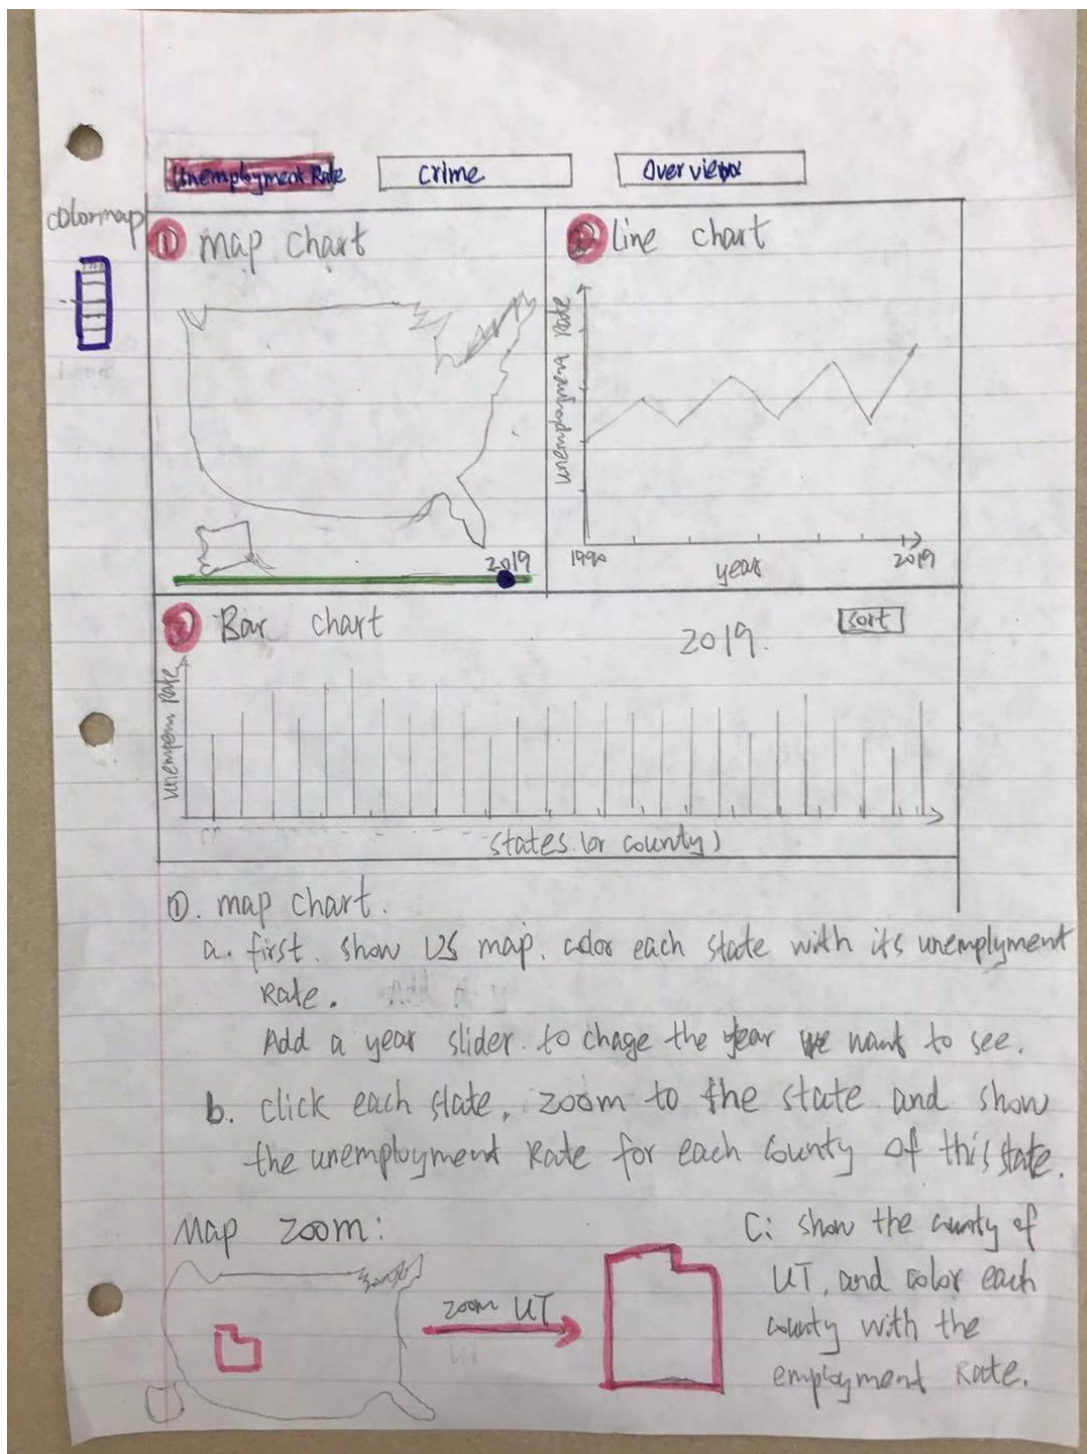 Unemployment Rate crime Overview
colormap
① map chart
② line chart
unemployment Rate
2019
1990 2019
year
③ Bar chart
2019.
sort
unempem Rate
states (or county)
①. map chart.
a. first. show US map. color each state with its unemplyment
Rate.
Add a year slider. to chage the year we want to see.
b. click each state, zoom to the state and show
the unemployment Rate for each county of this state.
Map zoom:
zoom UT
C: show the county of
UT, and color each
county with the
employment Rate.